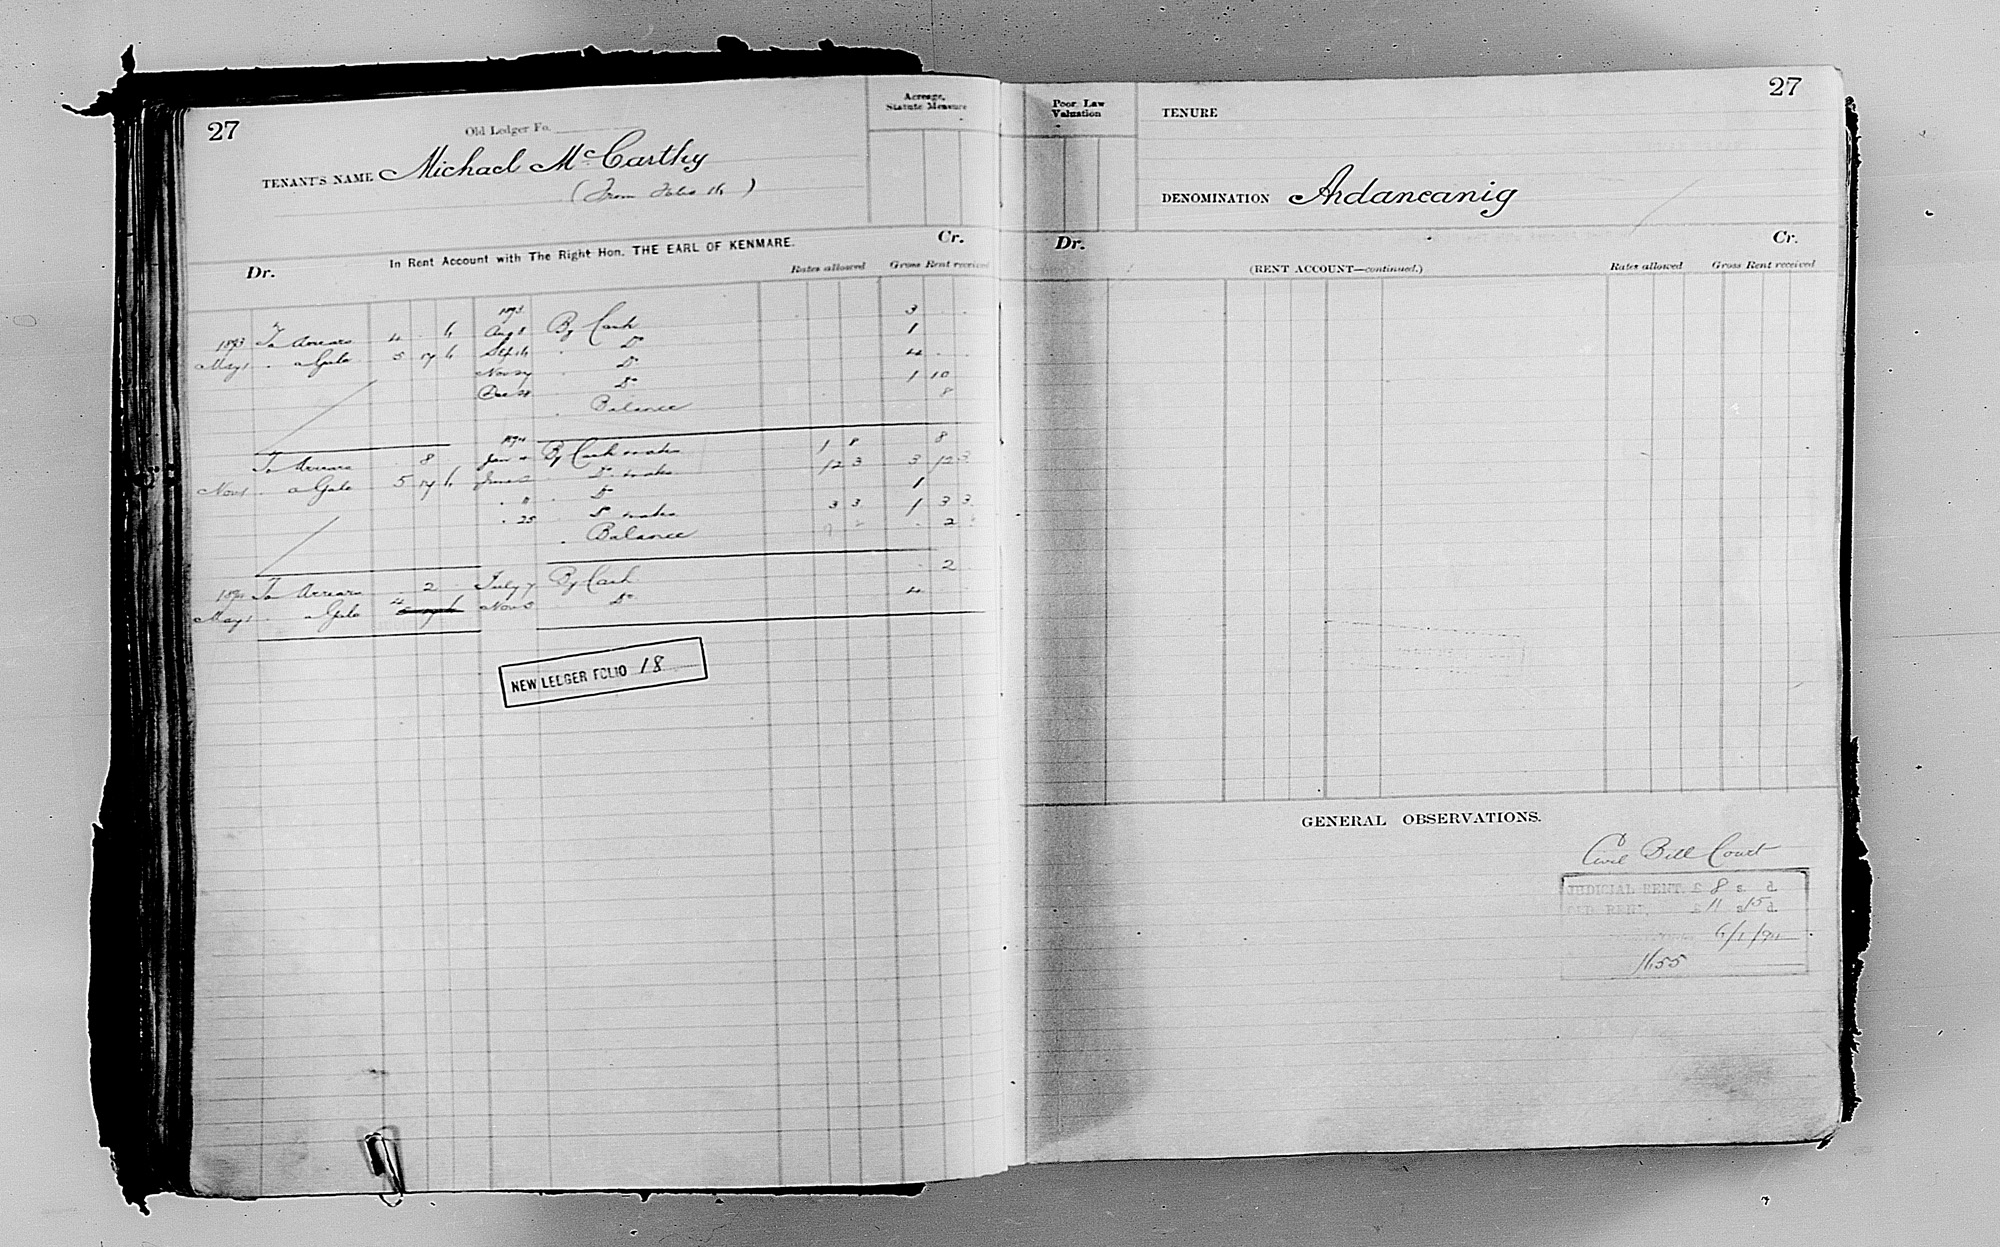 27
Old Ledger Fo.
Acreage,
Statute Measure
TENANT'S NAME Michael McCarthy
(From Folio 16)
In Rent Account with The Right Hon. THE EARL OF KENMARE.
Dr. Cr.
Rates allowed Gross Rent received
1893
1893 To Arrears 4 . 6 Aug 8 By Cash 3 . .
May 1 " a Gale 5 17 6 Sep 16 " Do 1
Nov 27 " Do 4 . .
Dec 21 Do 1 10
" Balance 8
1894
To Arrears . 8 Jan 4 By Cash & rates 1 8 8
Nov 1 " a Gale 5 17 6 June 2 " Do & rates 12 3 3 12 3
" 11 Do 1
" 25 Do & rates 3 3 1 3 3
" Balance . 2
1894 To Arrears 2 July 7 By Cash . 2
May 1 " a Gale 4 Nov 3 Do 4
NEW LEDGER FOLIO 18
27
Poor Law
Valuation
TENURE
DENOMINATION Ardancanig
Dr. Cr.
(RENT ACCOUNT—continued.) Rates allowed Gross Rent received
GENERAL OBSERVATIONS.
Civil Bill Court
JUDICIAL RENT, £ 8 s. d.
OLD RENT, £ 11 s. 15 d.
6/1/94
1655